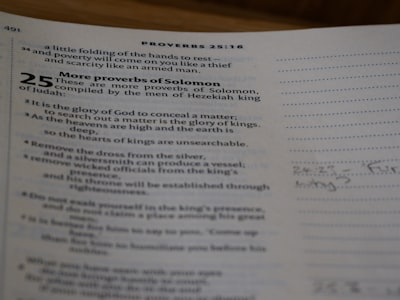 491
PROVERBS 25:16
34 a little folding of the hands to rest—
and poverty will come on you like a thief
and scarcity like an armed man.
More proverbs of Solomon
25 These are more proverbs of Solomon,
compiled by the men of Hezekiah king
of Judah:
2 It is the glory of God to conceal a matter;
to search out a matter is the glory of kings.
3 As the heavens are high and the earth is
deep,
so the hearts of kings are unsearchable.
4 Remove the dross from the silver,
and a silversmith can produce a vessel;
5 remove wicked officials from the king's
presence,
and his throne will be established through
righteousness.
6 Do not exalt yourself in the king's presence,
and do not claim a place among his great
men;
7 it is better for him to say to you, 'Come up
here,'
than for him to humiliate you before his
nobles.
What you have seen with your eyes